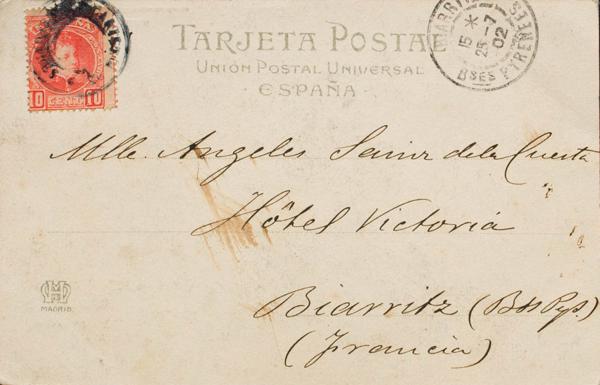 TARJETA POSTAL
UNIÓN POSTAL UNIVERSAL
ESPAÑA
10 CENT 10
BIARRITZ
5 *
25 -7
02
Bses PYRENEES
Mlle. Angeles Sainz de la Cuesta
Hôtel Victoria
Biarritz (Bss Pys.)
(Francia)
MADRID